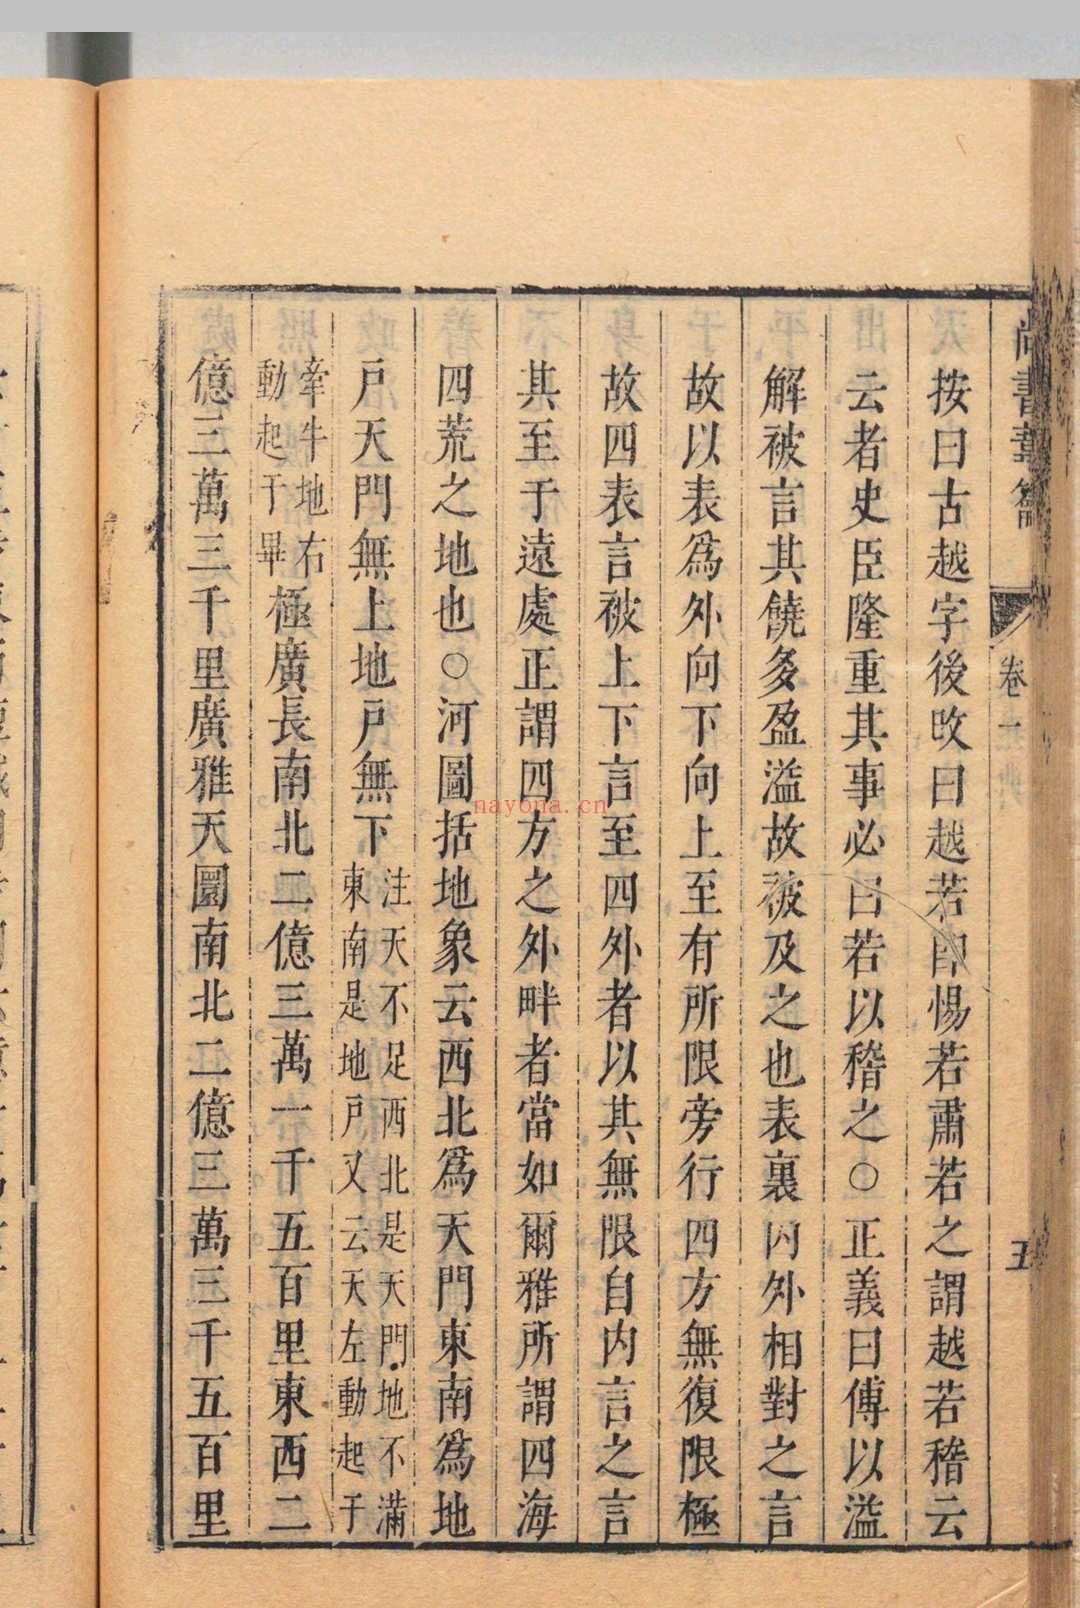 尚書葦籥
卷一
五
按曰古越字後改曰越若卽惕若肅若之謂越若稽云
云者史臣隆重其事必曰若以稽之○正義曰傅以溢
解被言其饒多盈溢故被及之也表裏內外相對之言
故以表爲外向下向上至有所限旁行四方無復限極
故四表言被上下言至四外者以其無限自內言之言
其至于遠處正謂四方之外畔者當如爾雅所謂四海
四荒之地也○河圖括地象云西北爲天門東南爲地
戶天門無上地戶無下注天不足西北是天門地不滿東南是地戶又云天左動起于
牽牛地右動起于畢極廣長南北二億三萬一千五百里東西二
億三萬三千里廣雅天圜南北二億三萬三千五百里
nayona.cn